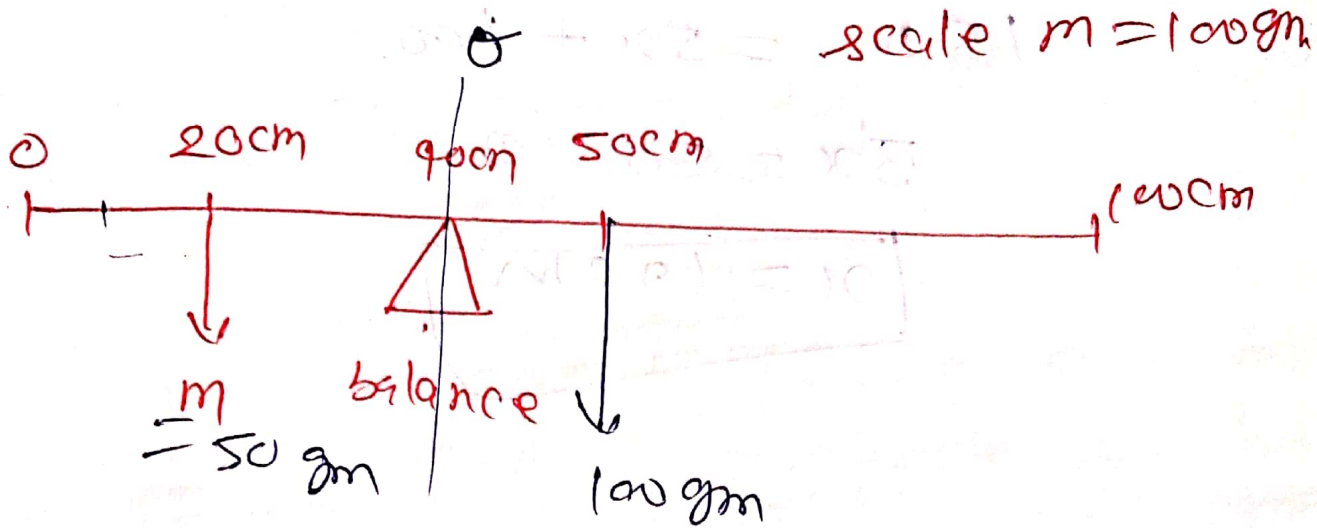 O
scale m = 100gm
0 20cm 40cm 50cm 100cm
m balance
= 50 gm 100 gm